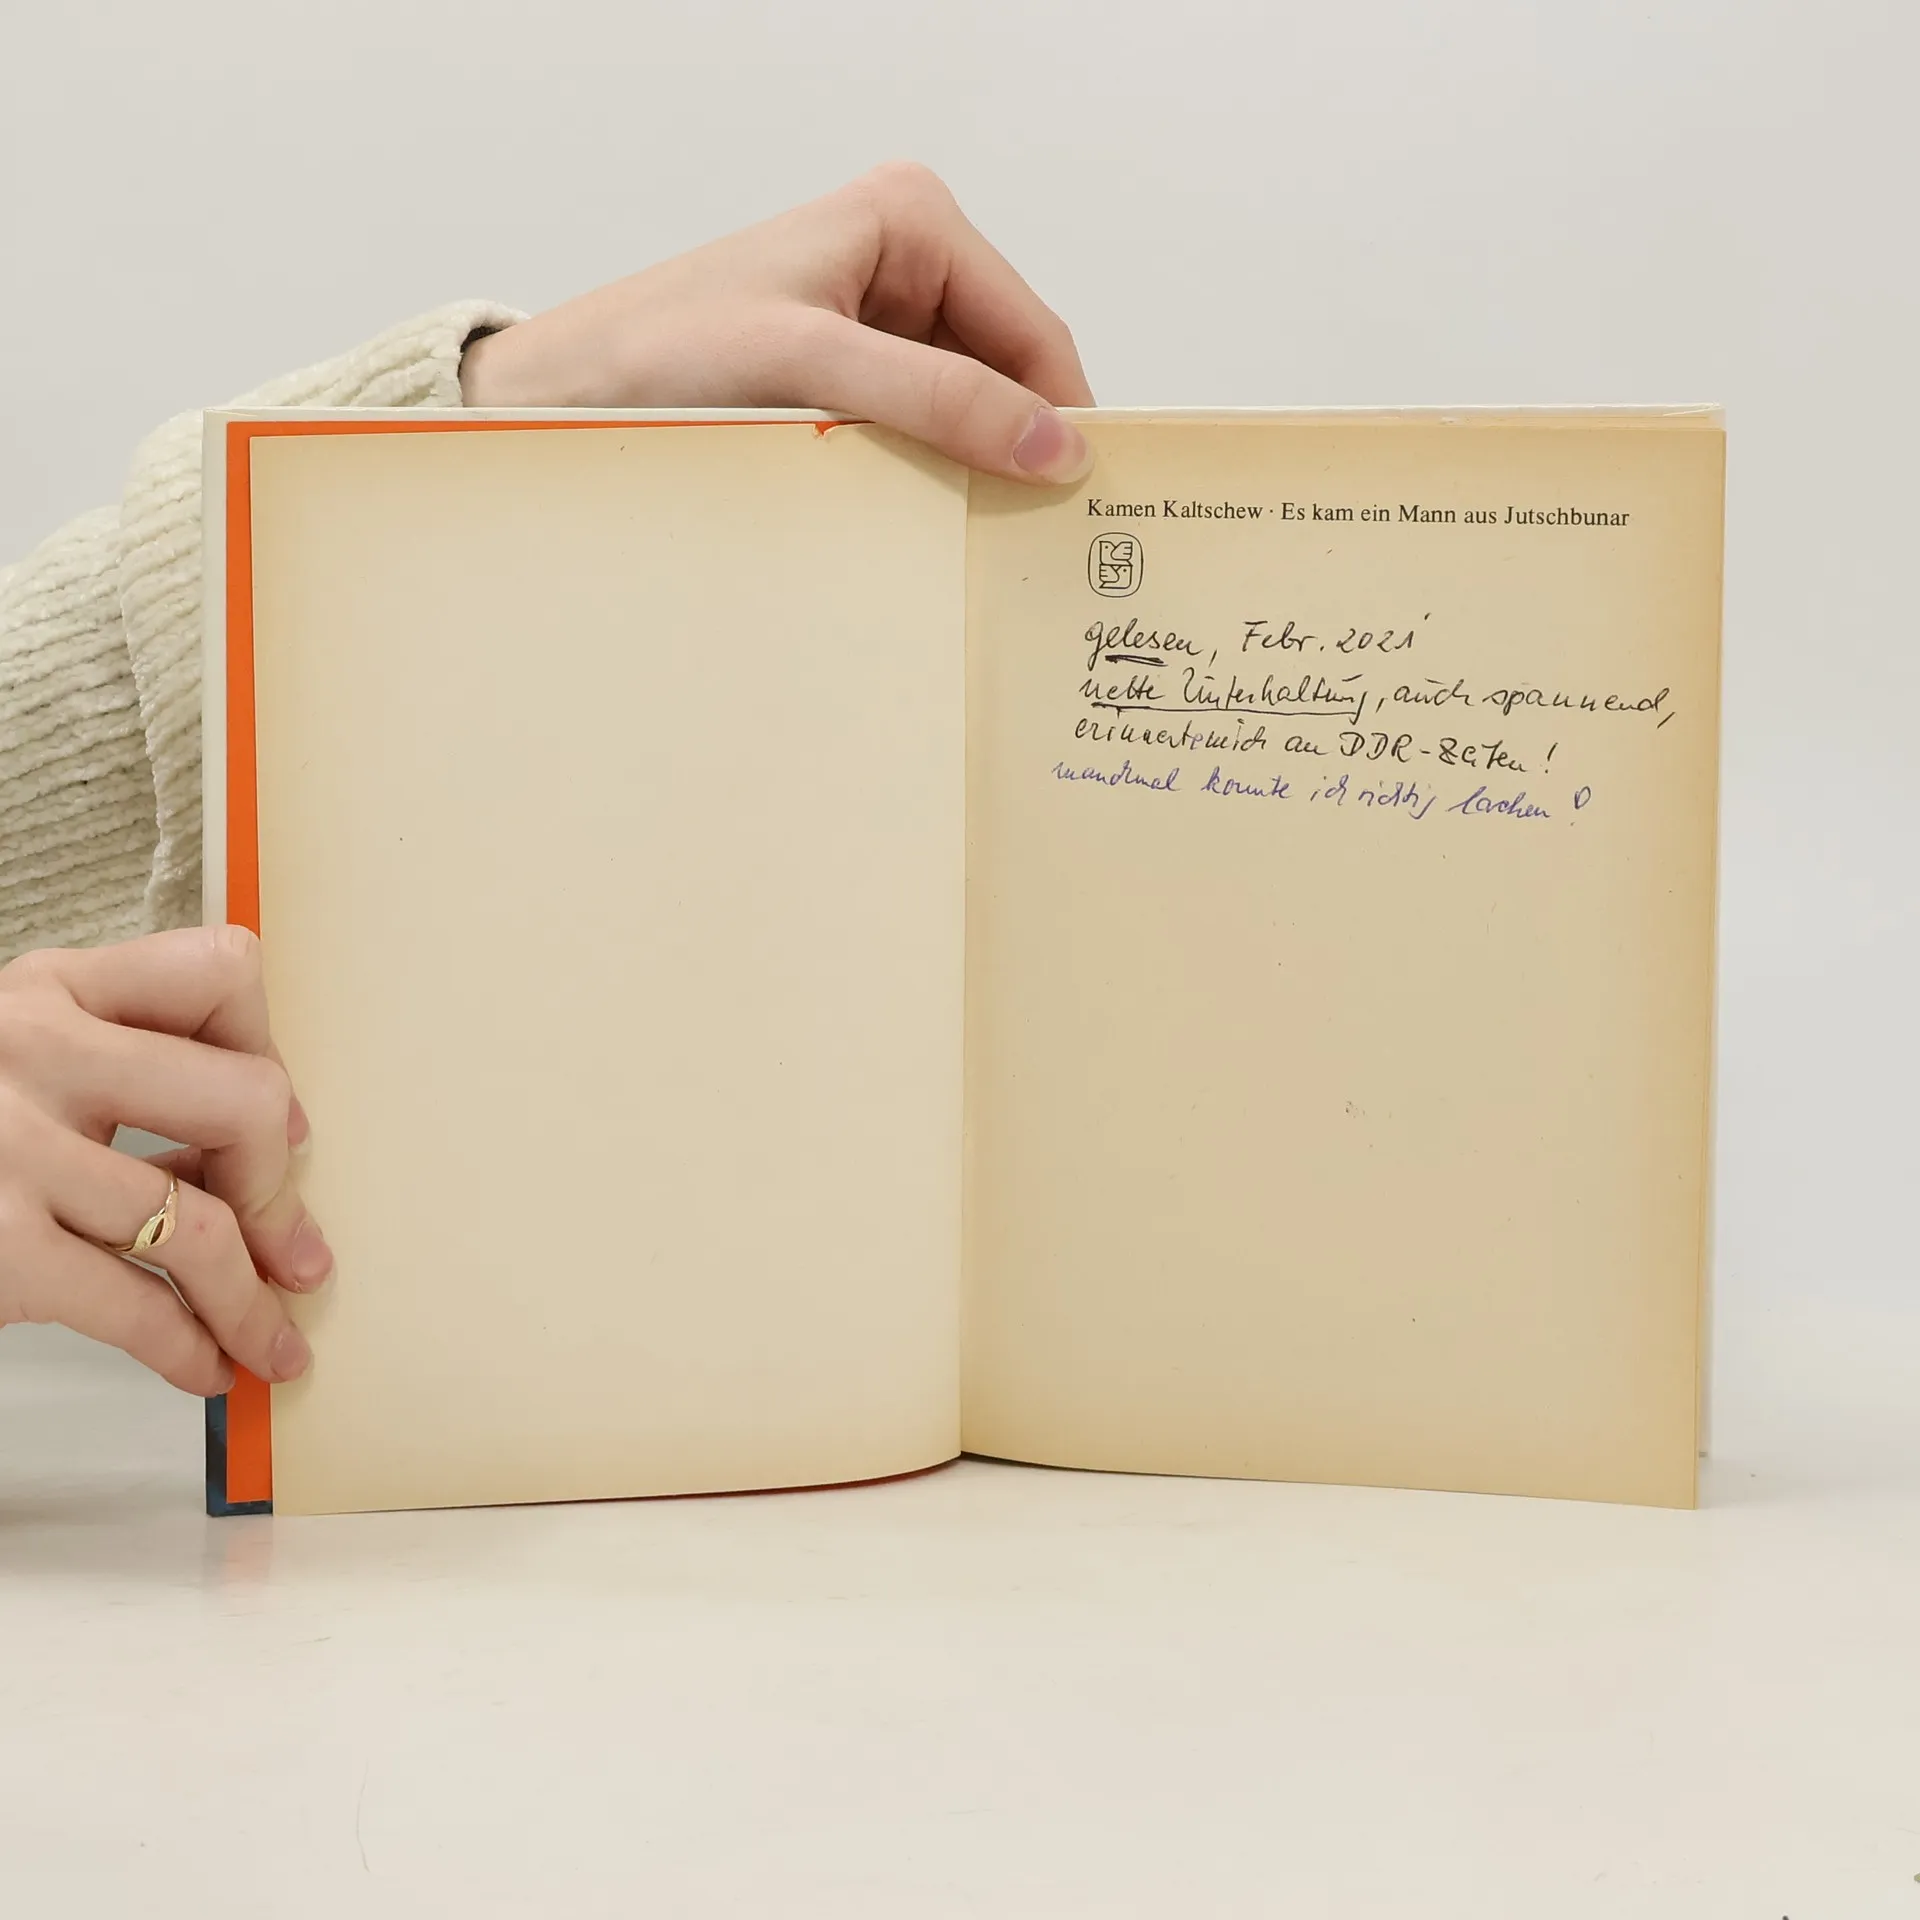 Kamen Kaltschew · Es kam ein Mann aus Jutschbunar
gelesen, Febr. 2021
nette Unterhaltung, auch spannend,
erinnerte mich an DDR-Zeiten!
manchmal konnte ich richtig lachen!